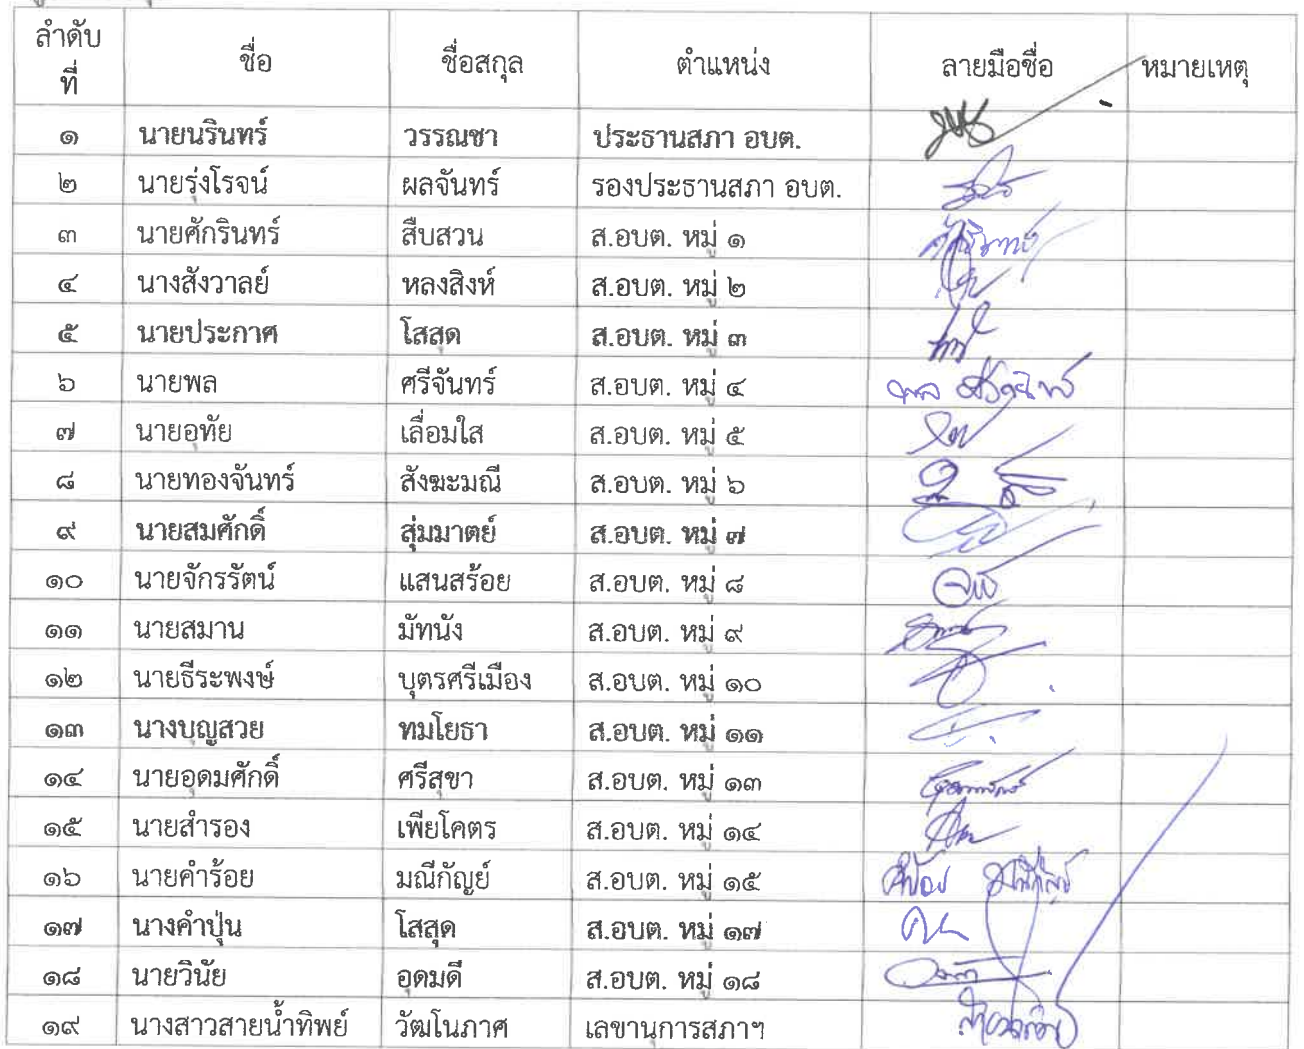 ลำดับที่ ชื่อ ชื่อสกุล ตำแหน่ง ลายมือชื่อ หมายเหตุ
๑ นายนรินทร์ วรรณชา ประธานสภา อบต.
๒ นายรุ่งโรจน์ ผลจันทร์ รองประธานสภา อบต.
๓ นายศักรินทร์ สืบสวน ส.อบต. หมู่ ๑ ศักรินทร์
๔ นางสังวาลย์ หลงสิงห์ ส.อบต. หมู่ ๒
๕ นายประกาศ โสสุด ส.อบต. หมู่ ๓
๖ นายพล ศรีจันทร์ ส.อบต. หมู่ ๔ พล ศรีจันทร์
๗ นายอุทัย เลื่อมใส ส.อบต. หมู่ ๕
๘ นายทองจันทร์ สังฆะมณี ส.อบต. หมู่ ๖
๙ นายสมศักดิ์ สุ่มมาตย์ ส.อบต. หมู่ ๗
๑๐ นายจักรรัตน์ แสนสร้อย ส.อบต. หมู่ ๘
๑๑ นายสมาน มัทนัง ส.อบต. หมู่ ๙
๑๒ นายธีระพงษ์ บุตรศรีเมือง ส.อบต. หมู่ ๑๐
๑๓ นางบุญสวย ทมโยธา ส.อบต. หมู่ ๑๑
๑๔ นายอุดมศักดิ์ ศรีสุขา ส.อบต. หมู่ ๑๓
๑๕ นายสำรอง เพียโคตร ส.อบต. หมู่ ๑๔
๑๖ นายคำร้อย มณีกัญย์ ส.อบต. หมู่ ๑๕
๑๗ นางคำปุ่น โสสุด ส.อบต. หมู่ ๑๗
๑๘ นายวินัย อุดมดี ส.อบต. หมู่ ๑๘
๑๙ นางสาวสายน้ำทิพย์ วัฒโนภาศ เลขานุการสภาฯ